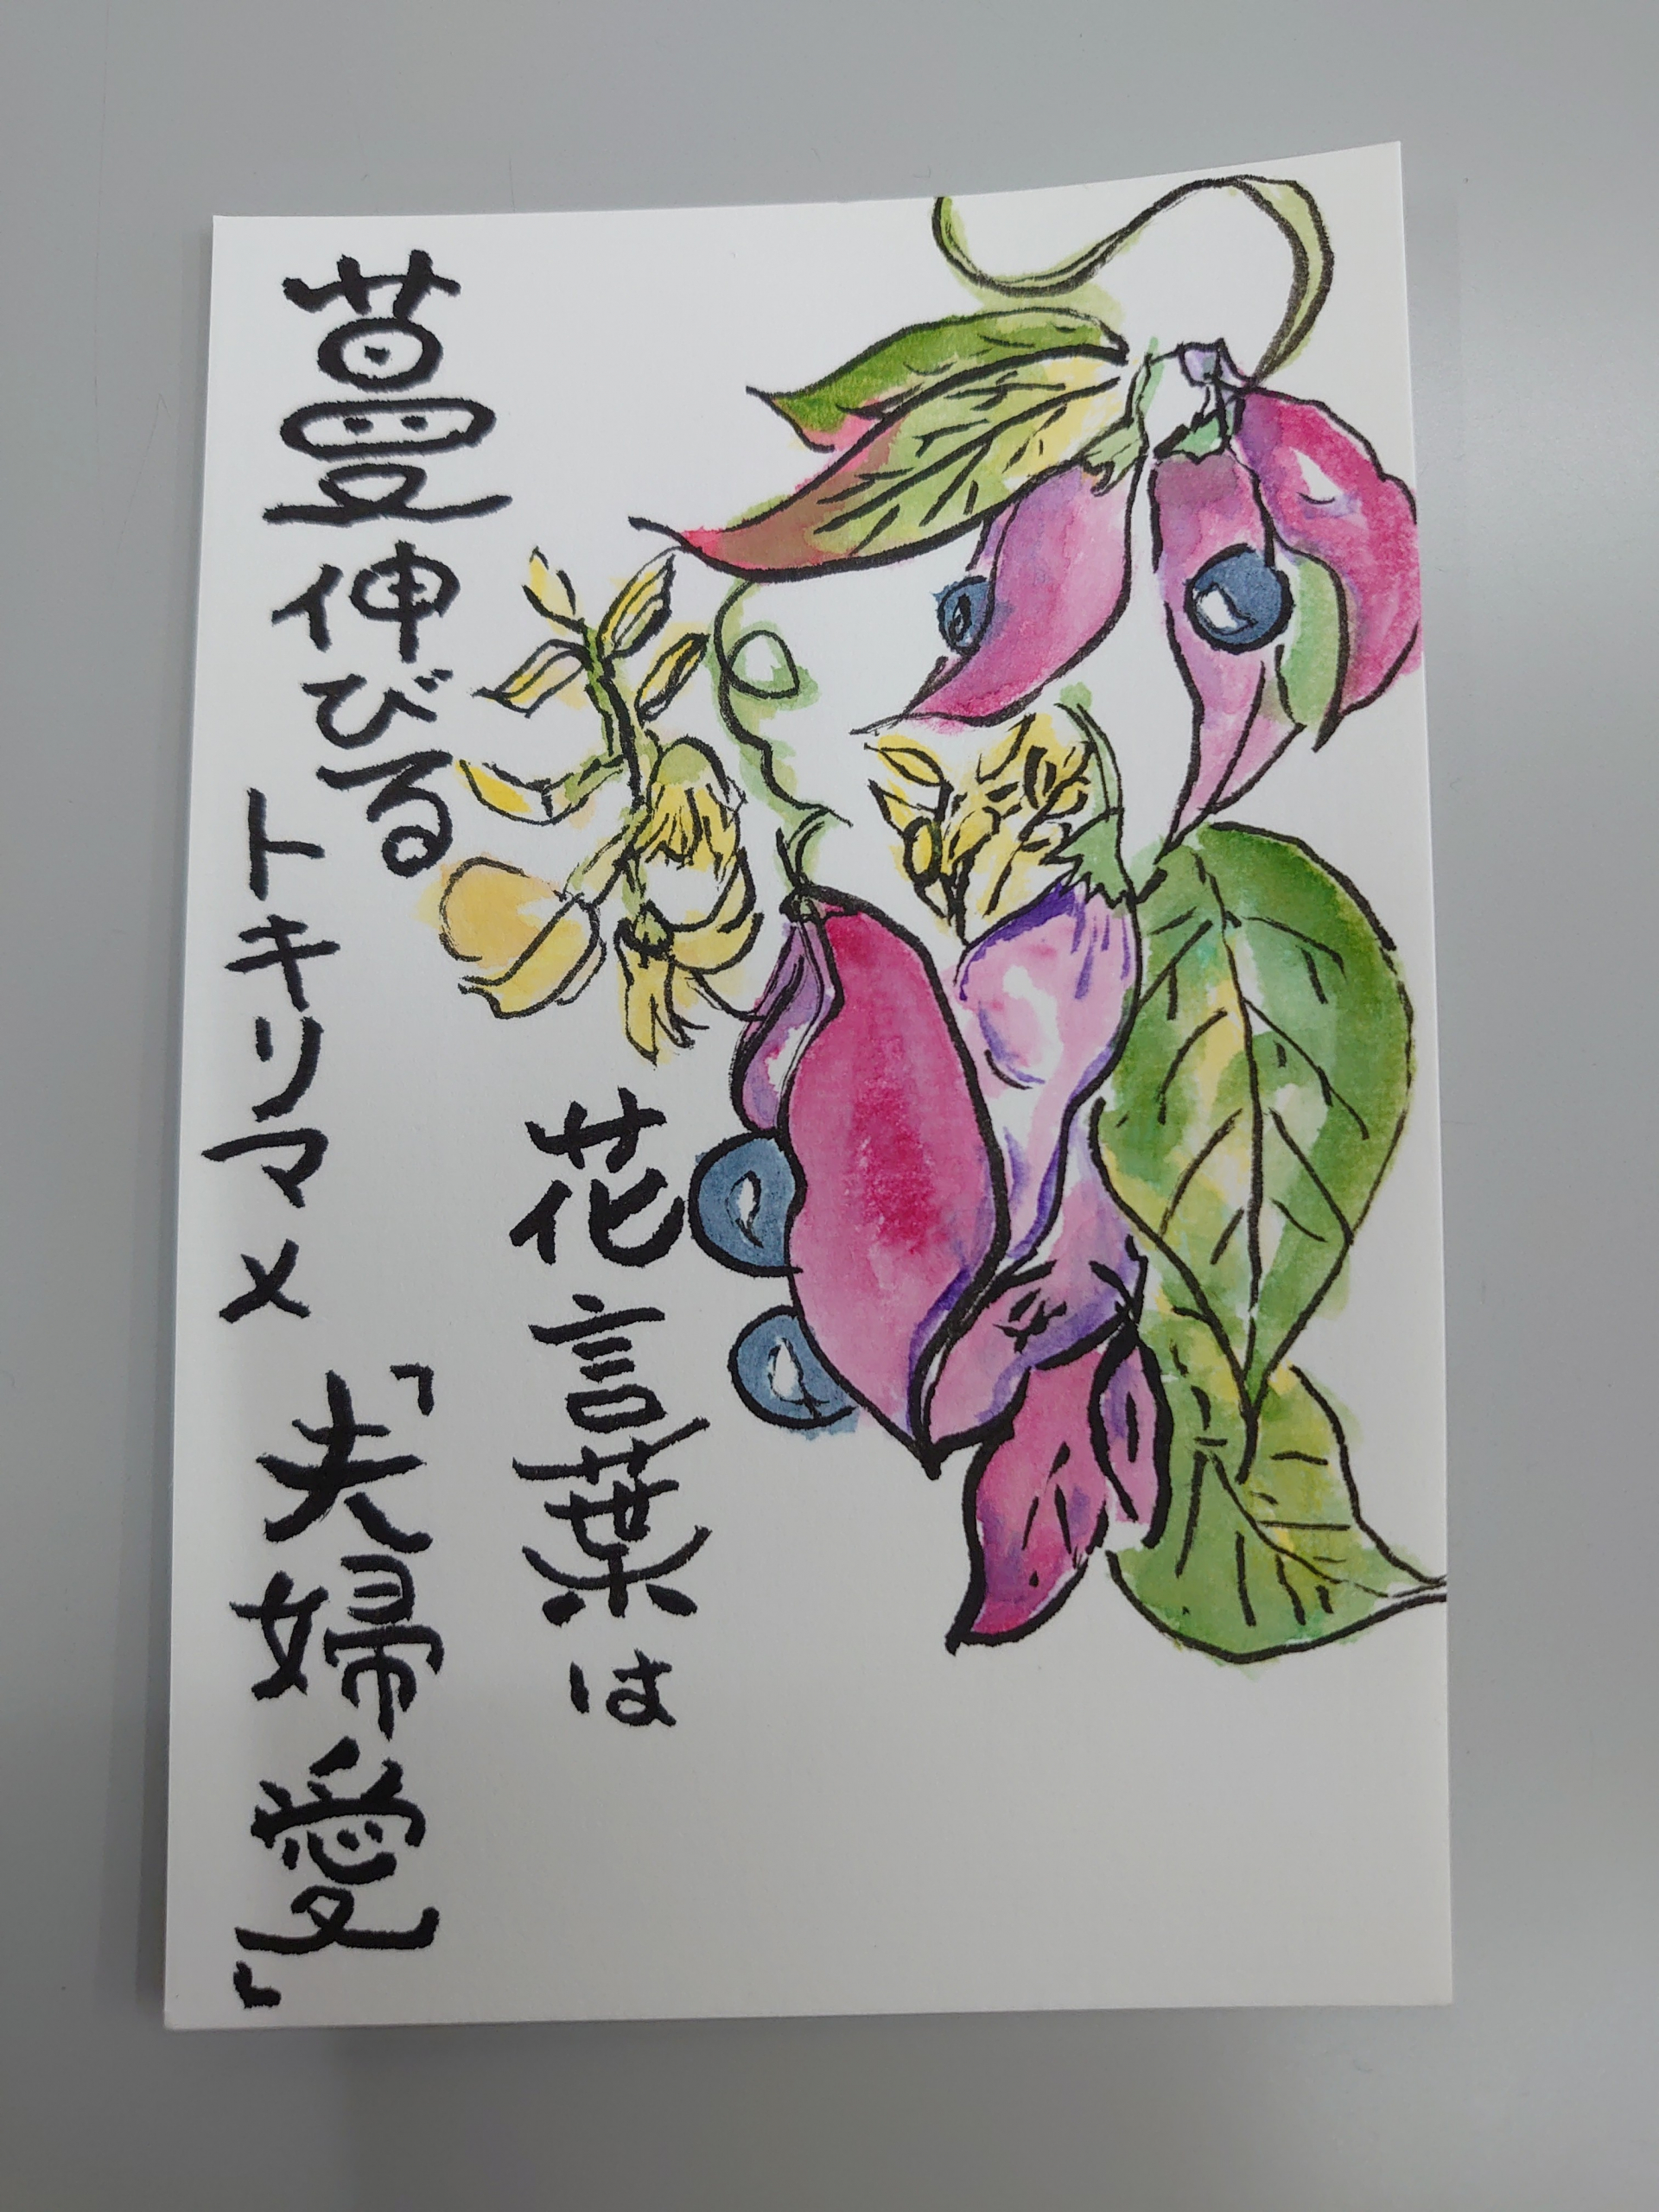 蔓伸びる
トキリマメ
花言葉は
「夫婦愛」